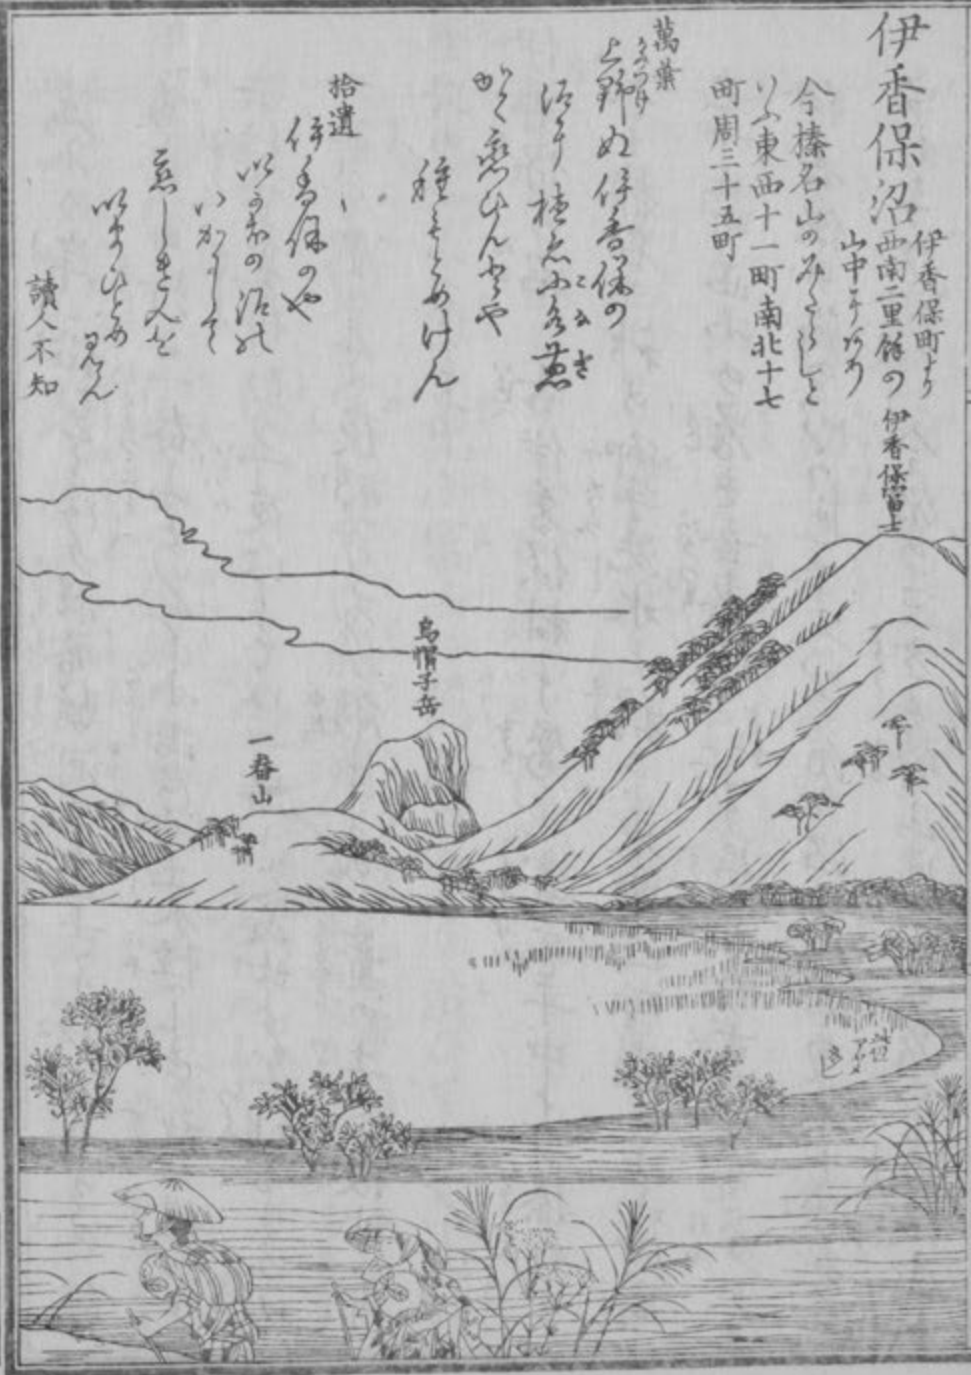 伊香保沼
伊香保町より
西南二里餘の
山中にあり
今榛名山のみたらしと
いふ東西十一町南北十七
町周三十五町
萬葉
上野の伊香保の
沼に植ゑ子水葱
かく恋ひんとや
種もとめけん
拾遺
伊香保のや
いかほの沼の
いかにして
恋しき人を
いまひとめ
見ん
讀人不知
伊香保富士
烏帽子岳
一春山